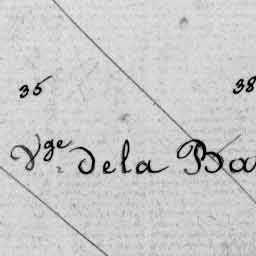 35
38
Vge dela Ba